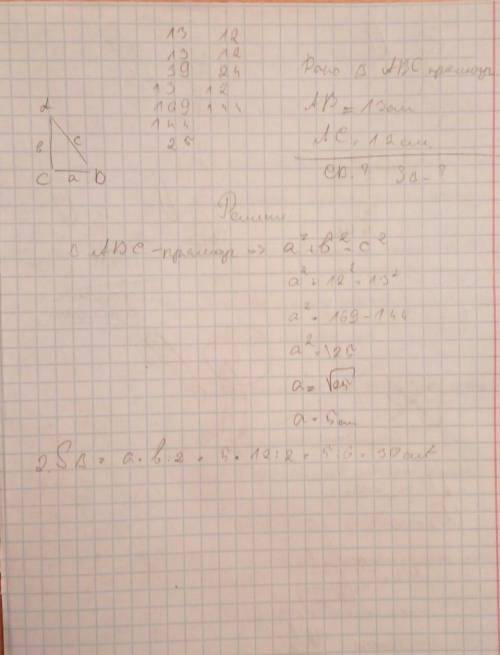 13 12
13 12
39 24
13 12
169 144
144
25
Дано Δ ABC прямоуг
AB = 13 см
AC = 12 см
CB - ? SΔ - ?
A
в c
C a B
Решение
ABC - прямоуг => a² + b² = c²
a² + 12² = 13²
a² = 169 - 144
a² = 25
a = √25
a = 5 см
2. SΔ = a · b : 2 = 5 · 12 : 2 = 5 · 6 = 30